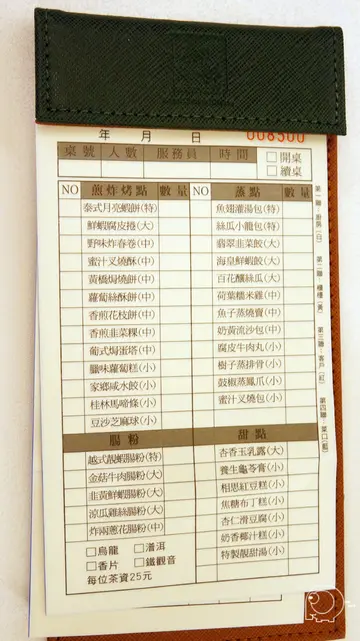 年 月 日 008500
桌號 人數 服務員 時間 □開桌
□續桌
NO 煎炸烤點 數量 NO 蒸點 數量
泰式月亮蝦餅(特) 魚翅灌湯包(特)
鮮蝦腐皮捲(大) 絲瓜小龍包(特)
野味炸春卷(中) 翡翠韭菜餃(大)
蜜汁叉燒酥(中) 海皇鮮蝦餃(大)
黃橋焗燒餅(中) 百花釀絲瓜(大)
蘿蔔絲酥餅(中) 荷葉糯米雞(中)
香煎花枝餅(中) 魚子蒸燒賣(中)
香煎韭菜粿(中) 奶黃流沙包(中)
葡式焗蛋塔(中) 腐皮牛肉丸(小)
臘味蘿蔔糕(小) 樹子蒸排骨(小)
家鄉咸水餃(小) 鼓椒蒸鳳爪(小)
桂林馬啼條(小) 蜜汁叉燒包(小)
豆沙芝麻球(小)
腸粉 甜點
越式靚蝦腸粉(特) 杏香玉乳露(大)
金菇牛肉腸粉(大) 養生龜苓膏(小)
韭黃鮮蝦腸粉(大) 相思紅豆糕(小)
涼瓜雞絲腸粉(大) 焦糖布丁糕(小)
炸兩蔥花腸粉(中) 杏仁滑豆腐(小)
奶香椰汁糕(小)
特製靚甜湯(小)
□烏龍 □潽洱
□香片 □鐵觀音
每位茶資25元
第一聯/廚房(白) 第二聯/櫃檯(黃) 第三聯/客戶(紅) 第四聯/菜口(藍)